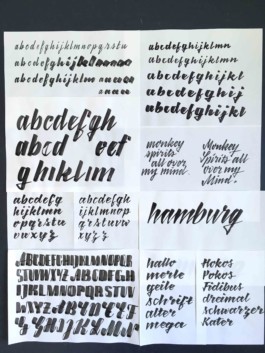 abcdefghijklmnopqrstu
abcdefghijklm
abcdefghijklm
abcdefghijklmn
abcdefghijklmn
abcdefghijkl
abcdefghijkl
abcdefghij
abcdefghijkl
abcdefgh
abcd eef
ghiklim
monkey
spirits
all over
my mind.
Monkey
Spirits all
over my
Mind.
abcdefg
hijklmn
opqrstu
vwxyz
abcdefg
hijklmnop
qrstuv
wxyz
hamburg
ABCDEFGHIJKLMNOPQR
STUVWXYZ ABCDEFGH
IJKLMNOPQRSTUV
WXYZ ABCDEF
hallo
merle
geile
schrift
alter
mega
Hokos
Pokos
Fidibus
dreimal
schwarzer
Kater